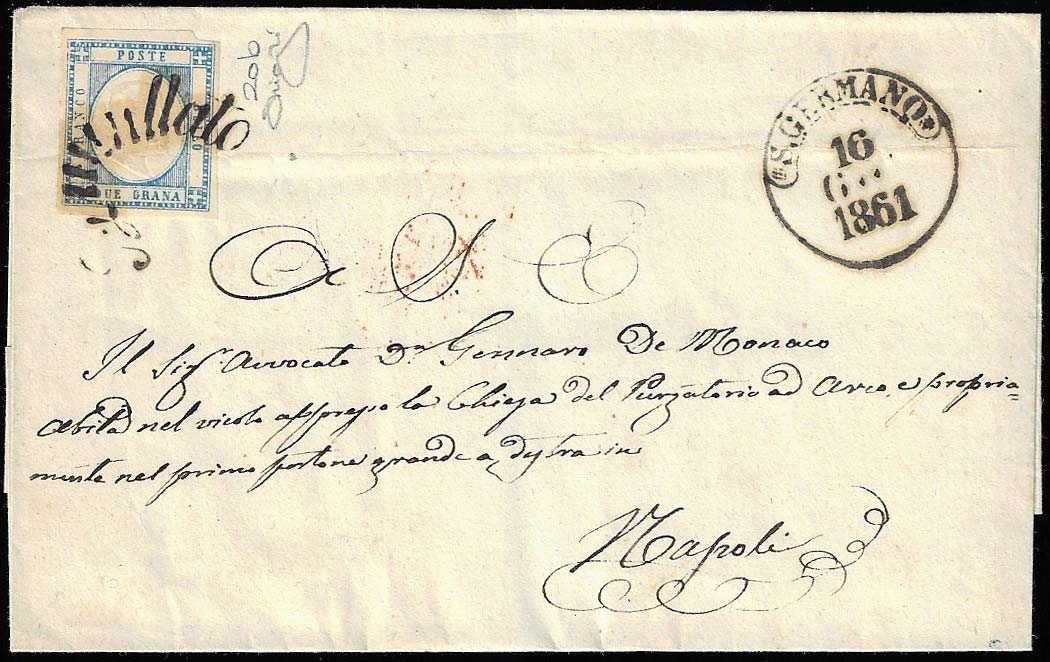 POSTE
FRANCO
DUE GRANA
Annullato
20b
S. GERMANO
16
1861
A S. E.
Il Sigr. Avvocato Dn. Gennaro De Monaco
abita nel vicolo appresso la Chiesa del Purgatorio ad Arco, e propria=
mente nel primo portone grande a destra in
Napoli